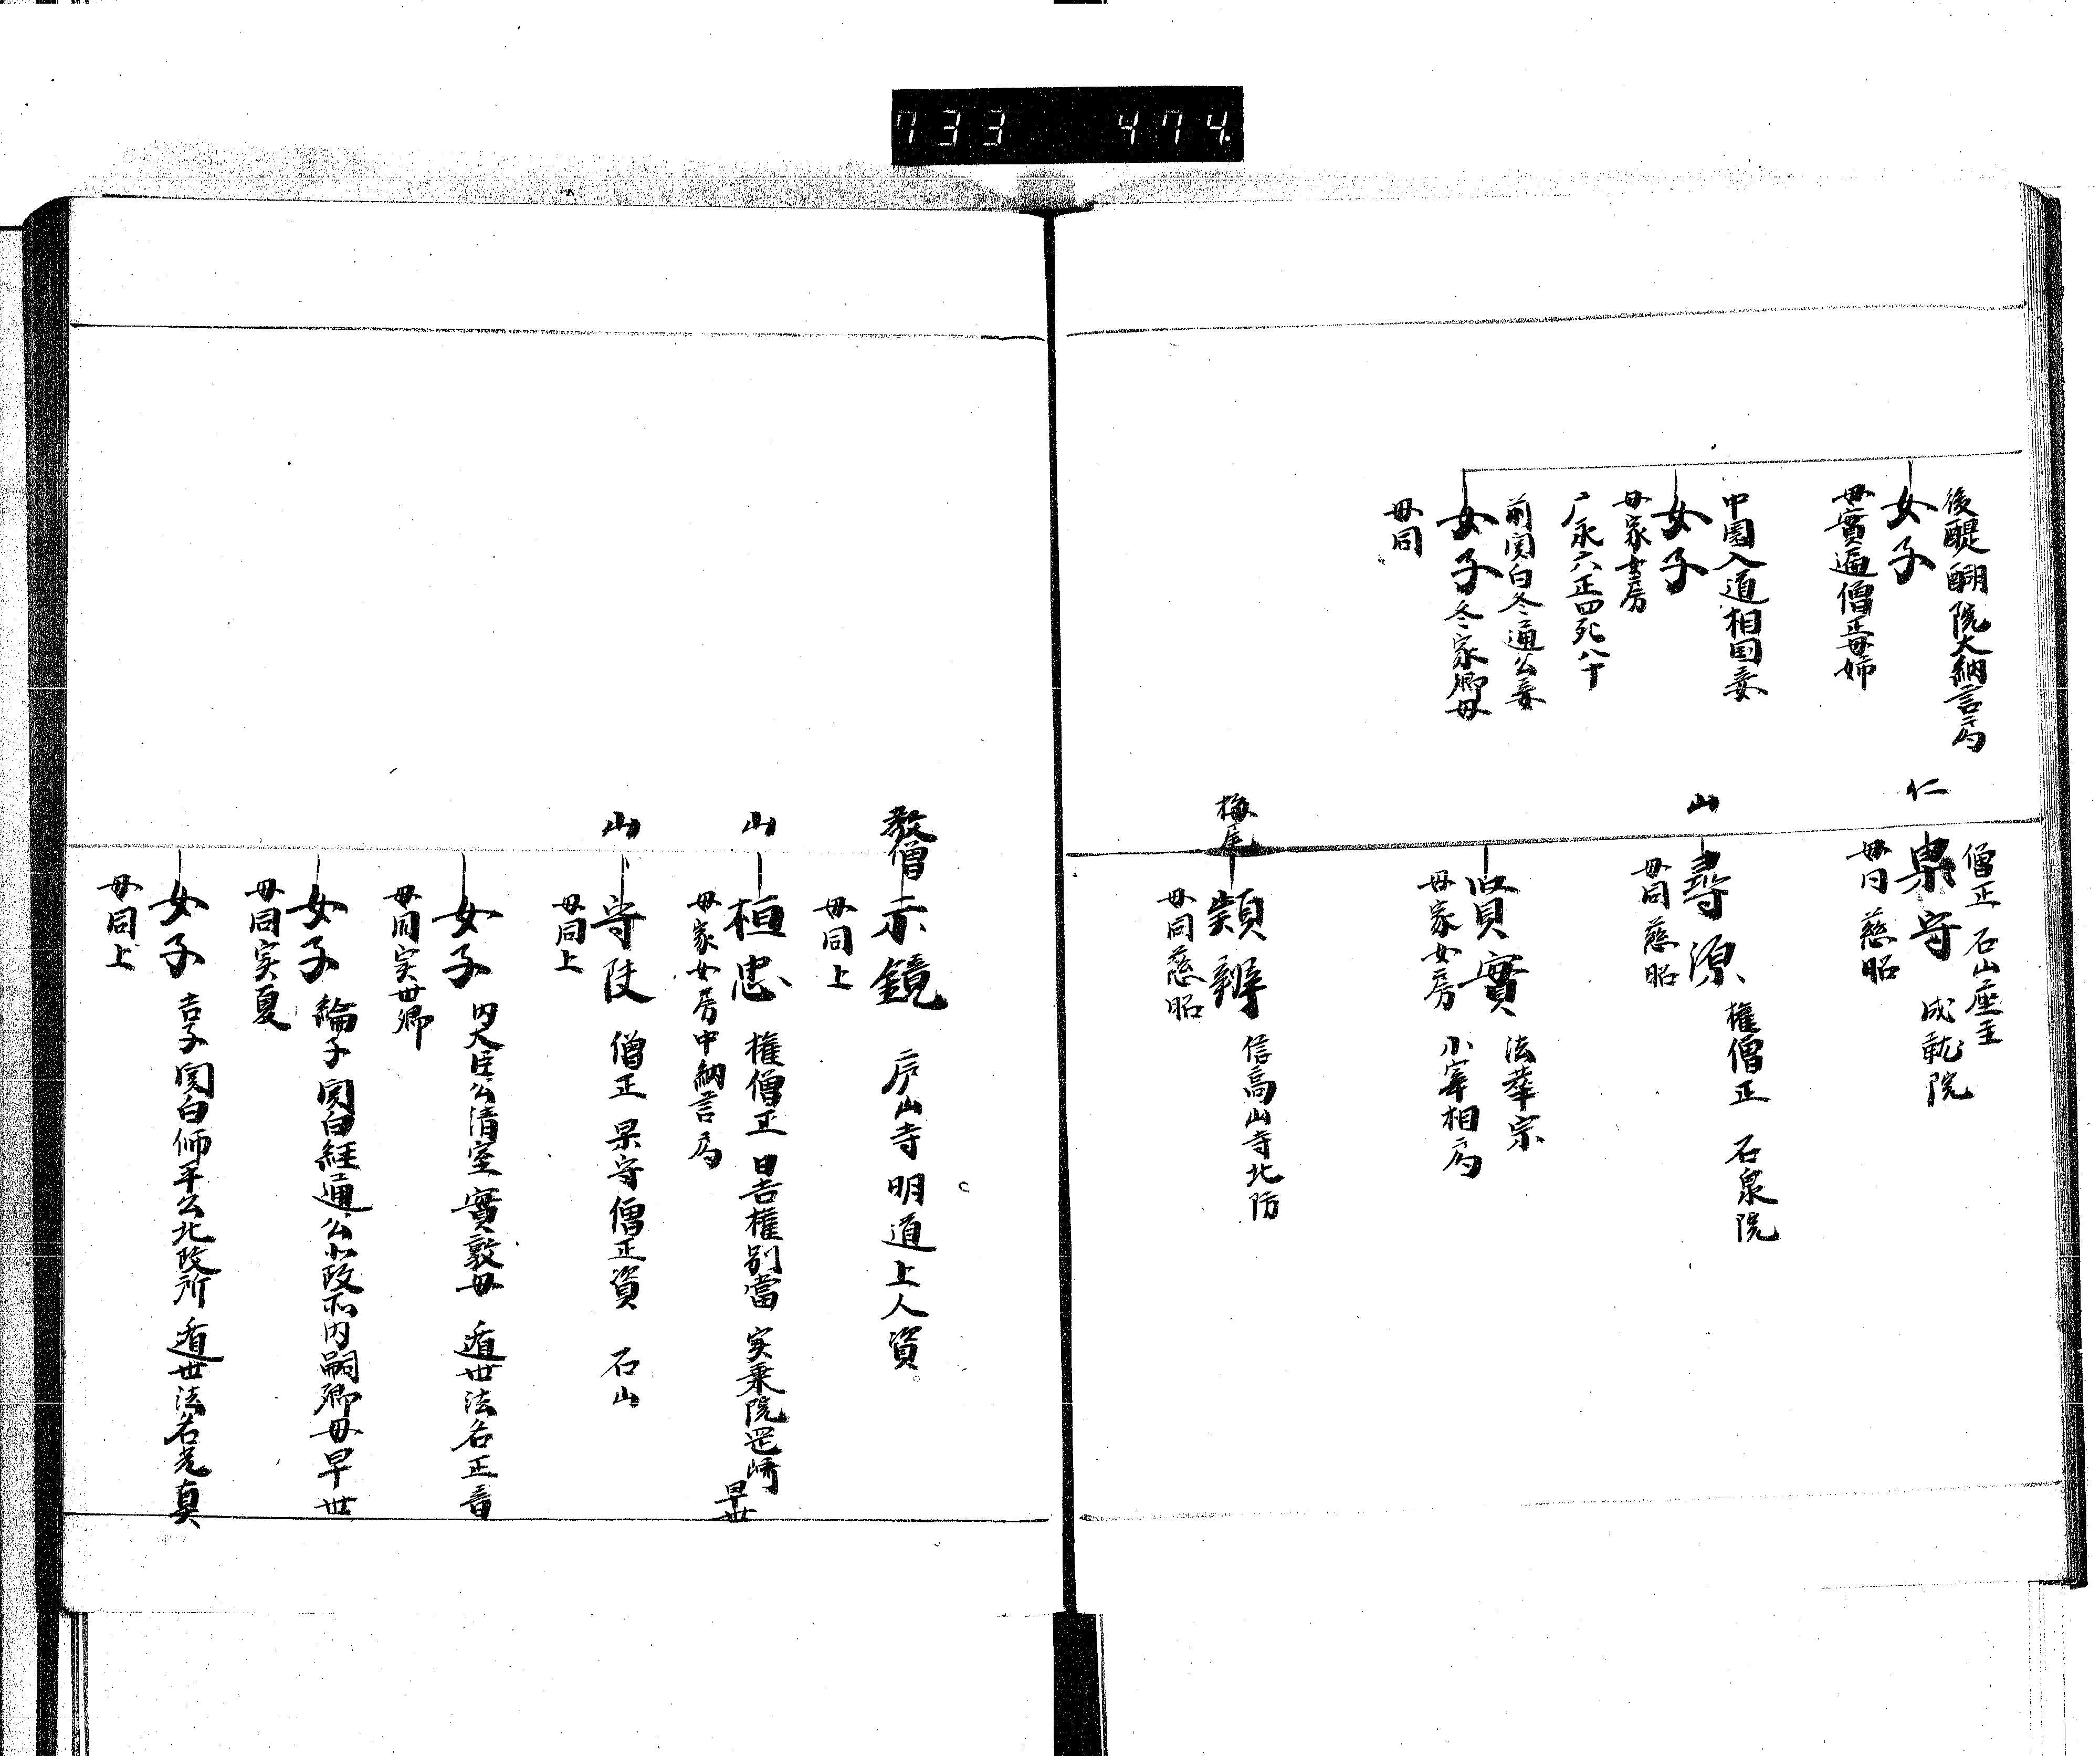 733 474
後醍醐院大納言局
女子
母實遍僧正母姉
中園入道相国妾
女子
母家女房
广永六正四死八十
前関白冬通公妾
女子 冬家卿母
母同
僧正 石山座主
仁
杲守 成就院
母同慈昭
山
尋源 権僧正 石泉院
母同慈昭
賢實 法華宗
母家女房 小宰相局
栂尾
顗辨 信高山寺北防
母同慈昭
教僧
示鏡 庐山寺明道上人資
母同上
山
桓忠 権僧正 日吉権別當 实乗院岡崎 早世
母家女房中納言局
山
守快 僧正 杲守僧正資 石山
母同上
女子 内大臣公清室 實敦母 遁世法名正音
母同实世卿
女子 綸子 関白経通公北政所 内嗣卿母早世
母同实夏
女子 吉子 関白師平公北政所 遁世法名光真
母同上